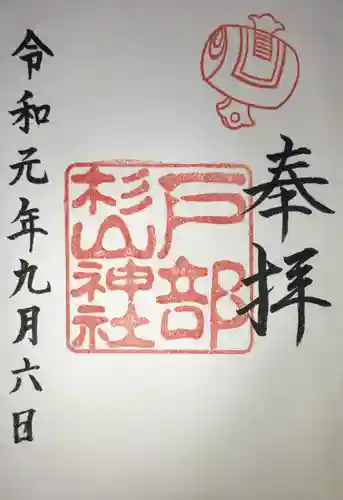 奉拝
戸部
杉山神社
令和元年九月六日